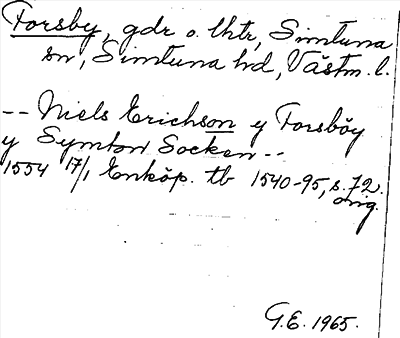 Forsby, gdr o. lhtr, Simtuna
sn, Simtuna hd, Västm. l.
-- Niels Erichson y Forsböy
y Symton Socken --
1554 17/1 Enköp. tb 1540-95, s. 72.
orig.
G.E. 1965.